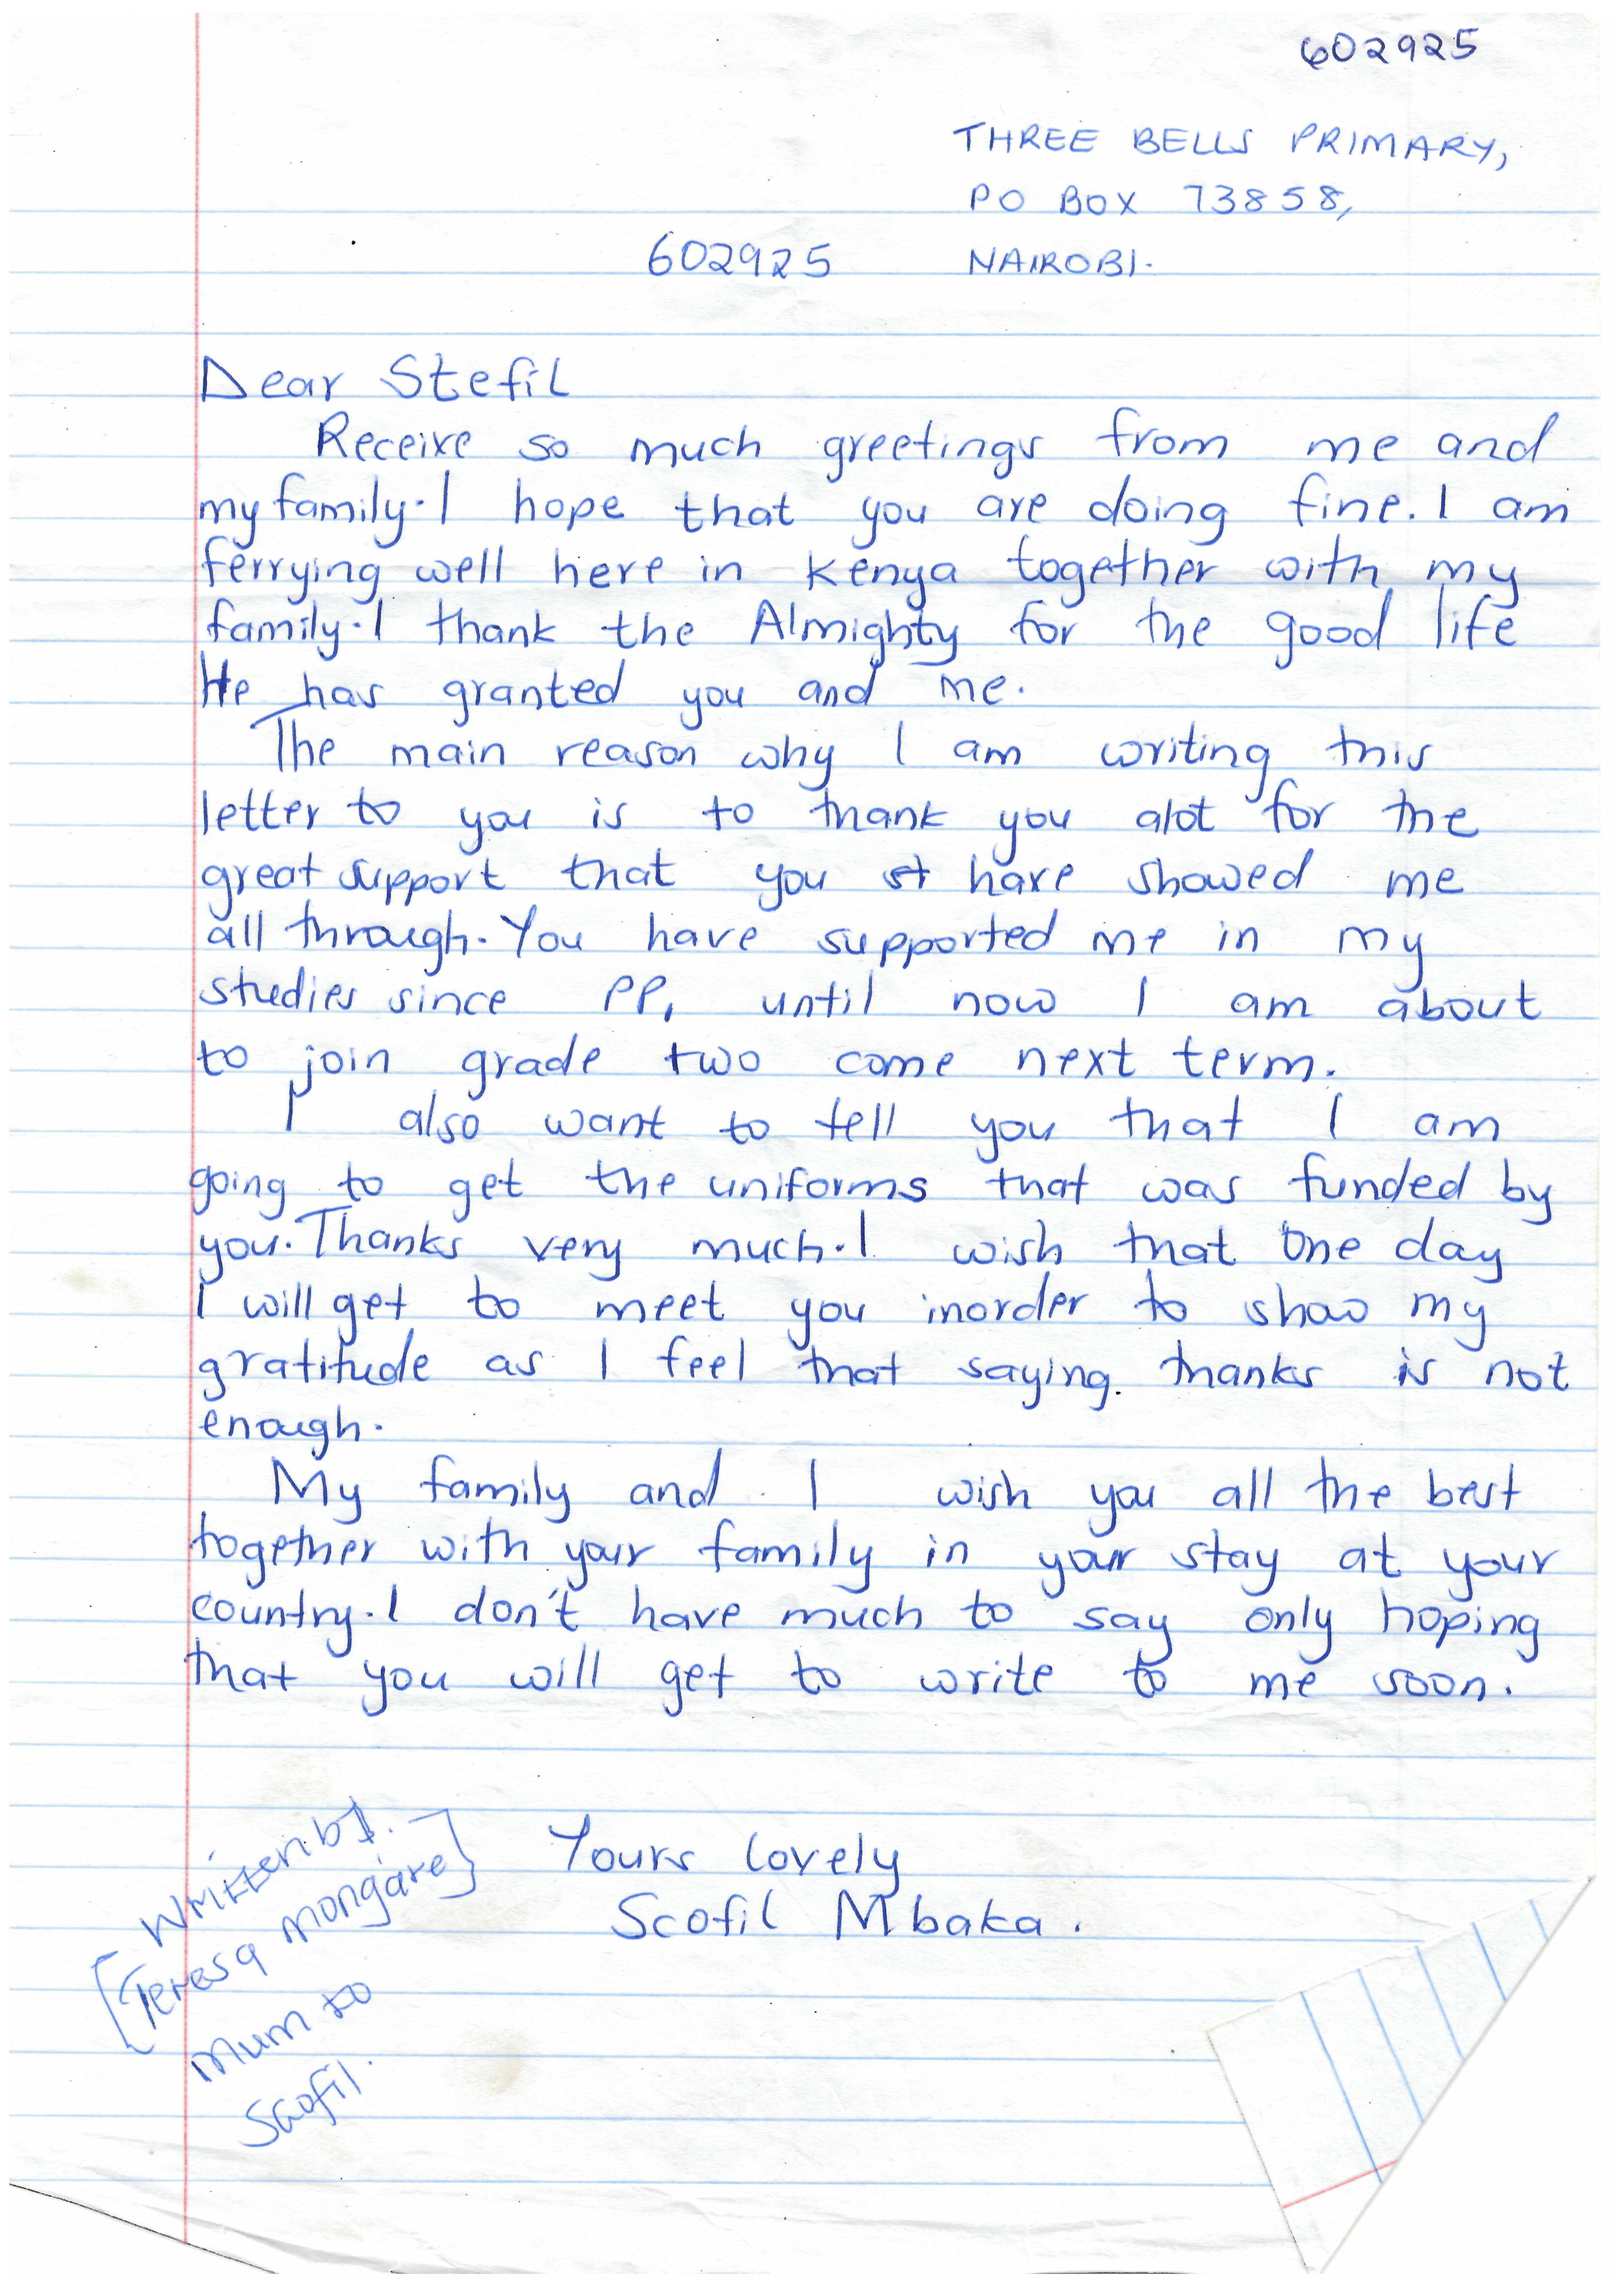 602925
THREE BELLS PRIMARY,
PO BOX 73858,
602925 NAIROBI.
Dear Stefil
Receive so much greetings from me and
my family. I hope that you are doing fine. I am
ferrying well here in Kenya together with my
family. I thank the Almighty for the good life
He has granted you and me.
The main reason why I am writing this
letter to you is to thank you alot for the
great support that you st have showed me
all through. You have supported me in my
studies since PP1 until now I am about
to join grade two come next term.
I also want to tell you that I am
going to get the uniforms that was funded by
you. Thanks very much. I wish that One day
I will get to meet you inorder to show my
gratitude as I feel that saying. thanks is not
enough.
My family and I wish you all the best
together with your family in your stay at your
country. I don't have much to say only hoping
that you will get to write to me soon.
Yours lovely
Scofil Mbaka.
Written by.
[Teresa Mongare]
Mum to
Scofil.